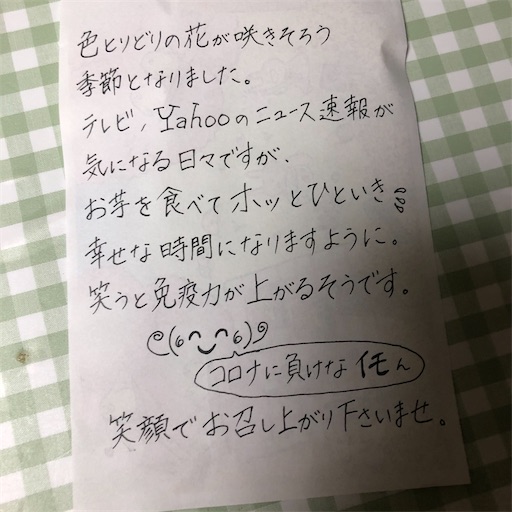 色とりどりの花が咲きそろう
季節となりました。
テレビ、Yahooのニュース速報が
気になる日々ですが、
お芋を食べてホッとひといき
幸せな時間になりますように。
笑うと免疫力が上がるそうです。
コロナに負けなイモん
笑顔でお召し上がり下さいませ。